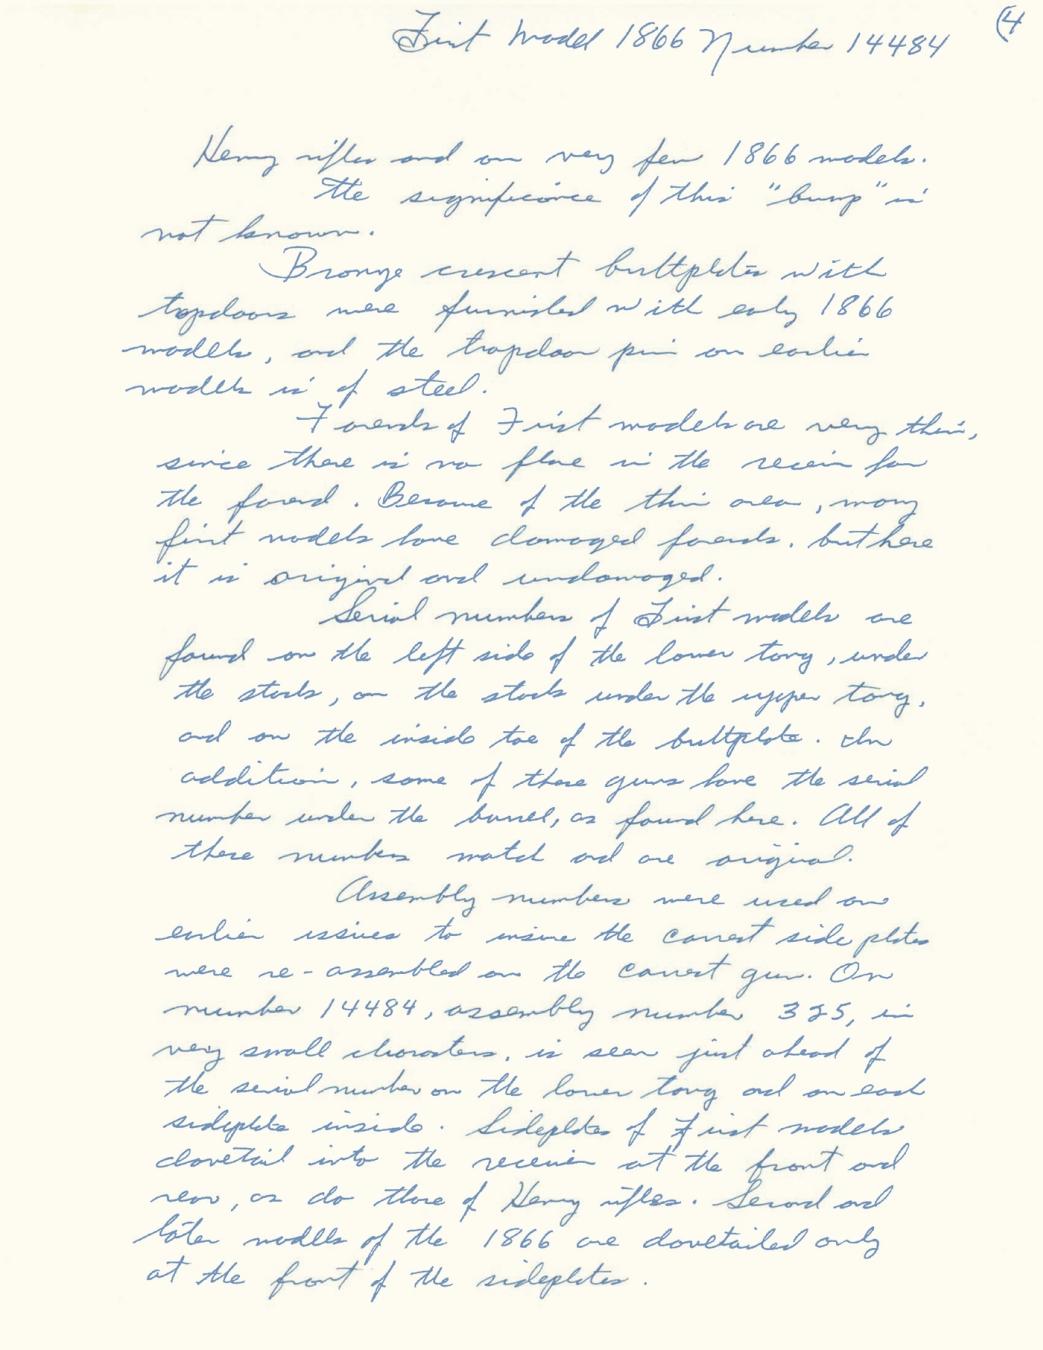 (4
First Model 1866 Number 14484
Henry rifles and on very few 1866 models.
The significance of this "bump" is
not known.
Bronze crescent buttplates with
trapdoors were furnished with early 1866
models, and the trapdoor pin on earlier
models is of steel.
Forends of First models are very thin,
since there is no flare in the receiver for
the forend. Because of the thin area, many
first models have damaged forends, but here
it is original and undamaged.
Serial numbers of First models are
found on the left side of the lower tang, under
the stock, on the stock under the upper tang,
and on the inside toe of the buttplate. In
addition, some of these guns have the serial
number under the barrel, as found here. All of
these numbers match and are original.
Assembly numbers were used on
earlier issues to insure the correct side plates
were re-assembled on the correct gun. On
number 14484, assembly number 325, in
very small characters, is seen just ahead of
the serial number on the lower tang and on each
sideplate inside. Sideplates of First models
dovetail into the receiver at the front and
rear, as do those of Henry rifles. Second and
later models of the 1866 are dovetailed only
at the front of the sideplates.